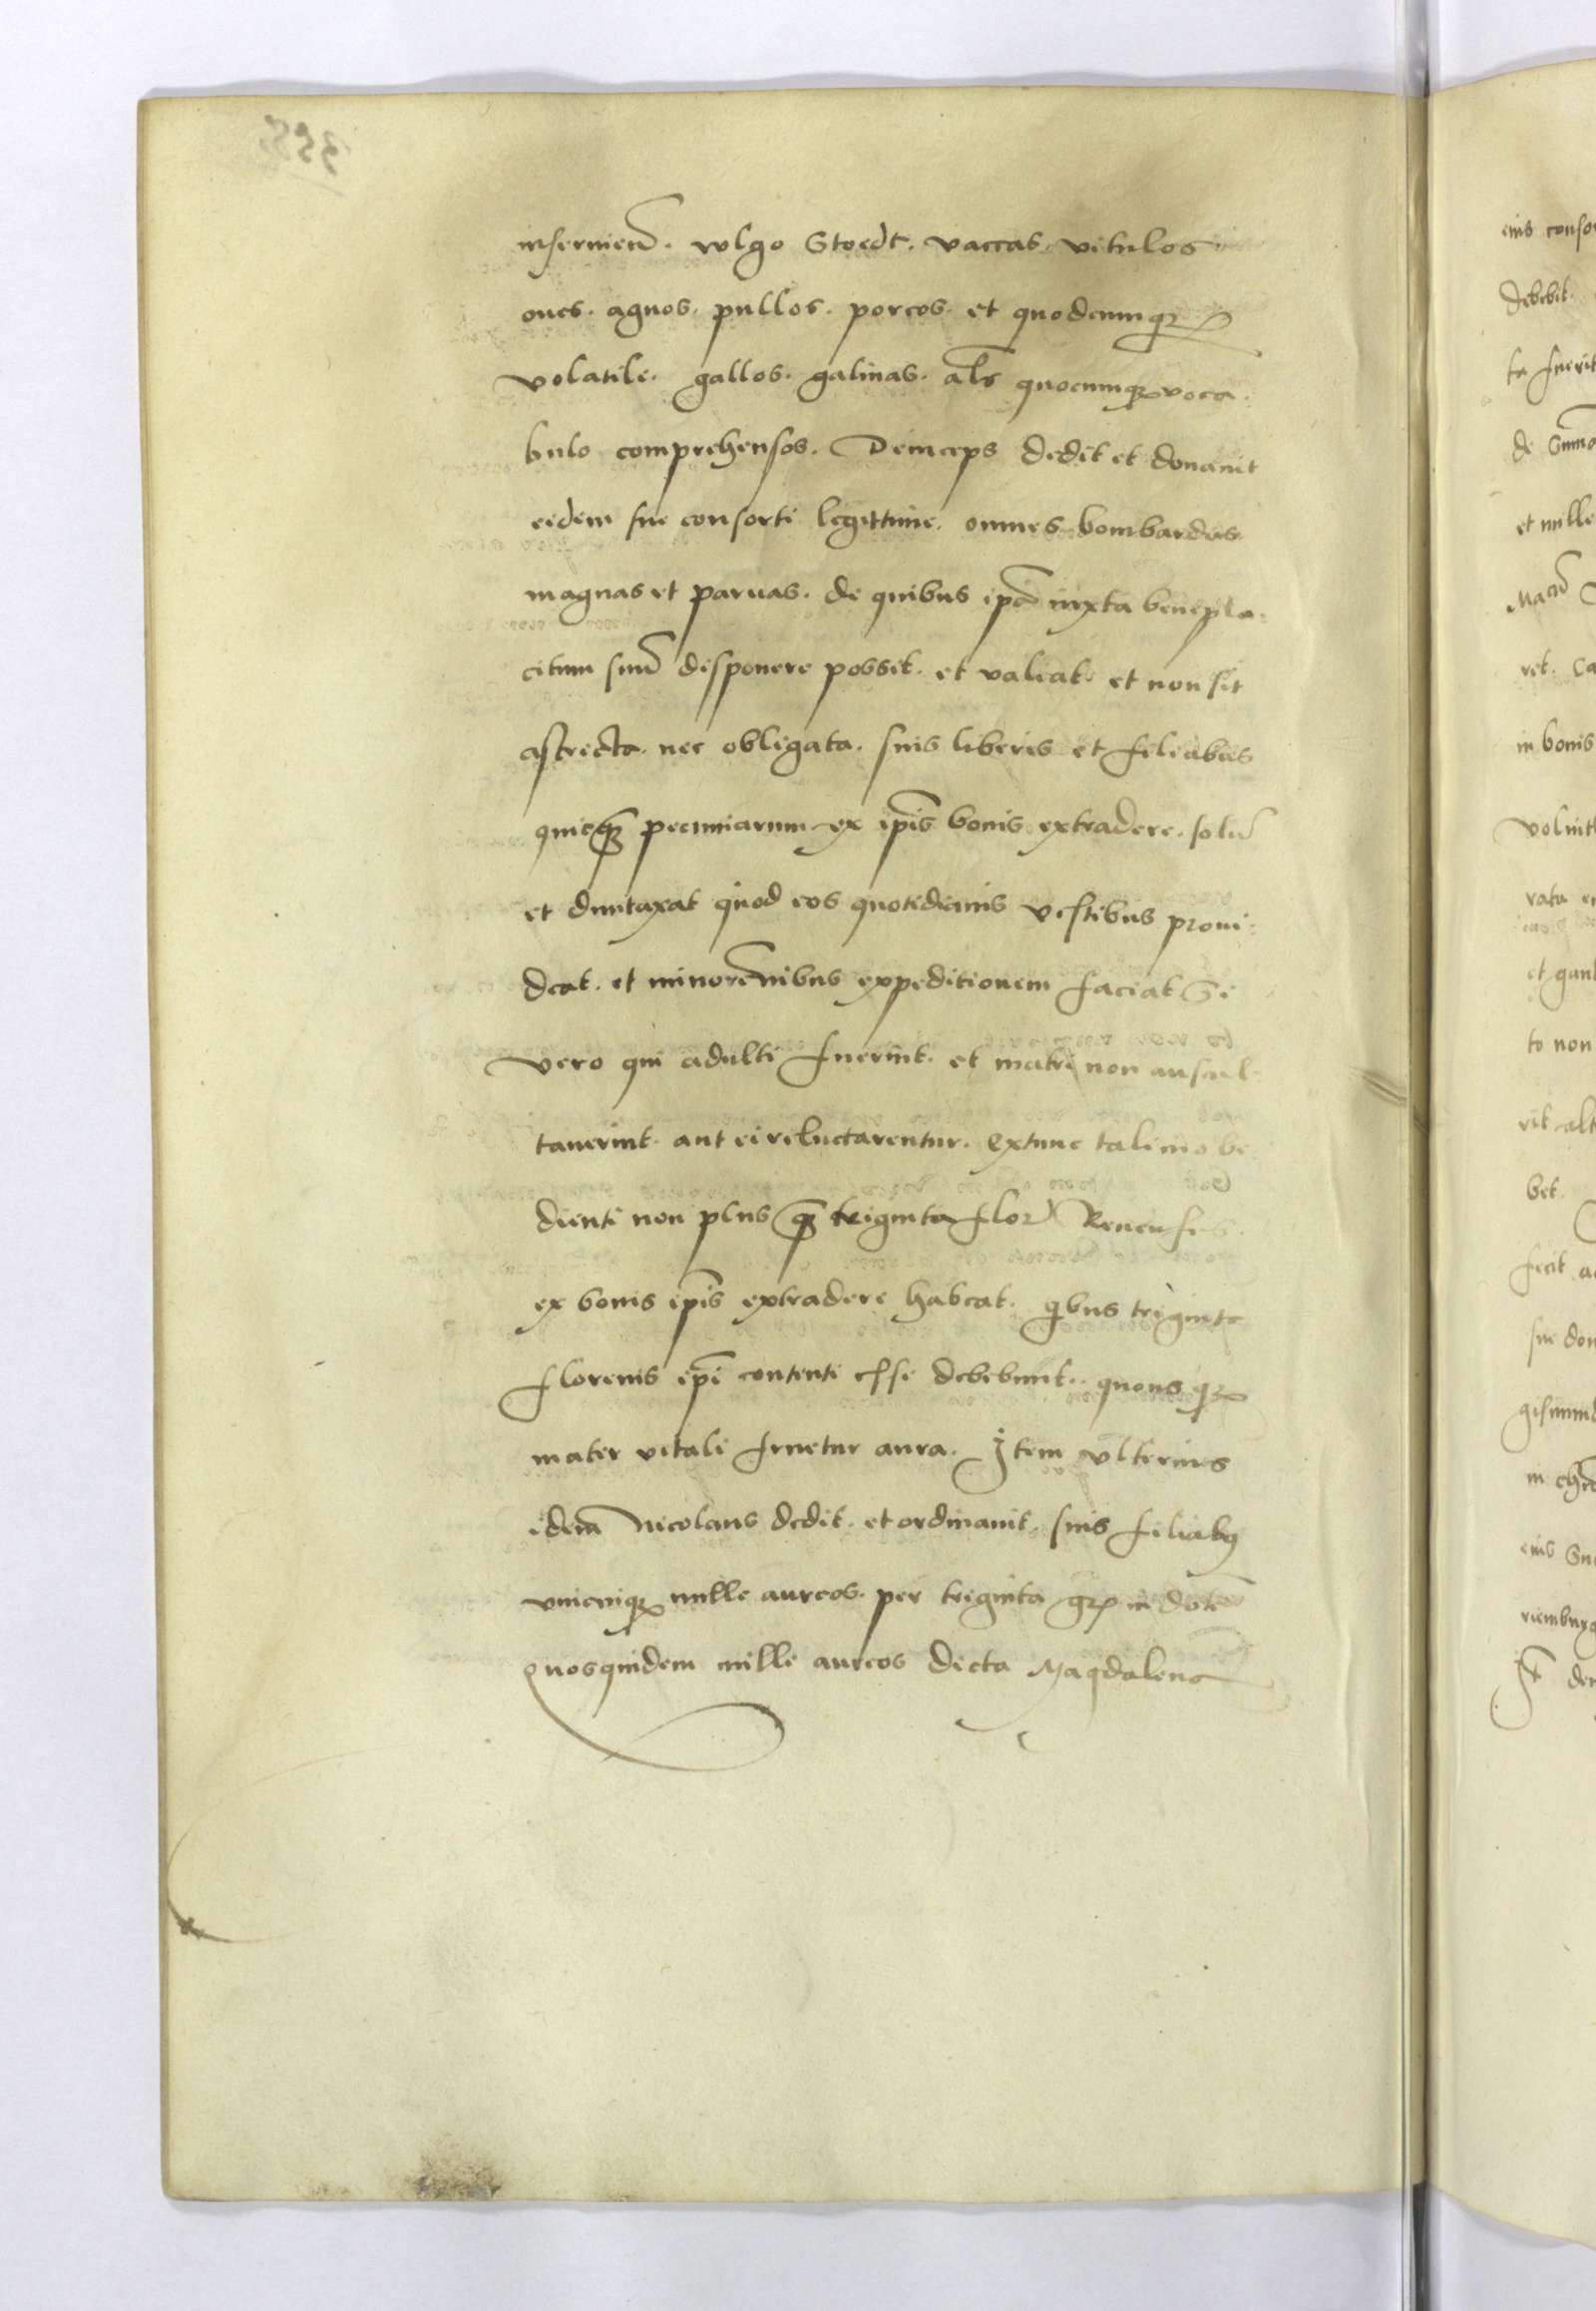 inseruien̄. wlgo Stoedt. vaccas. vitulos.
oues. agnos. pullos. porcos. et quodcumqȝ
volatile. gallos. galinas. al̄s quocumqȝ voca-
bulo comprehensos. Deinceps dedit et donauit
eidem sue consorti legittime. omnes bombardas.
magnas et paruas. de quibus ip̄a iuxta benepla-
citum suū disponere possit. et valeat. et non sit
astricta. nec obligata. suis liberis et filiabus
quicq̄ȝ pecuniarum ex ip̄is bonis extradere. solū
et duntaxat quod eos quotidianis vestibus proui-
deat. et minorēnibus expeditionem faciat Si
vero qui adulti fuerint. et matri non auscul-
tauerint. aut ei reluctarentur. extunc tali inobe
dienti non plus q̄ȝ triginta flor Renenses.
ex bonis ip̄is extradere habeat. qibus triginta
florenis ip̄i contenti esse debebunt. quousqȝ
mater vitali fruetur aura. Item vlterius
idem̄ Nicolaus dedit. et ordinauit. suis filiabꝫ
vnicuiqȝ mille aureos. per triginta gr̄ in dotē
Quosquidem mille aureos dicta Magdalena
eius conso
debebit.
ta fuerit
de Summa
et mille
ret. Ca
in bonis
voluit
to non
rit alt
bet.
fecit a
sue don
gismund
eius